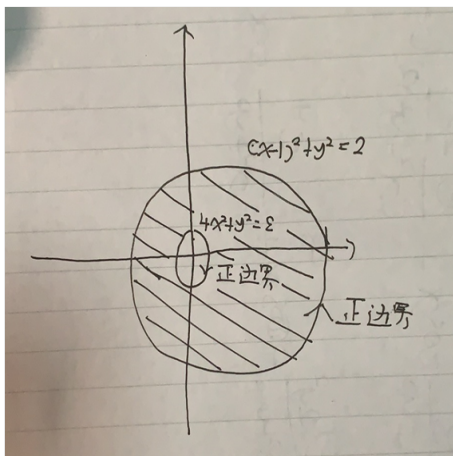 (x-1)²+y²=2
4x²+y²=ε
正边界
正边界